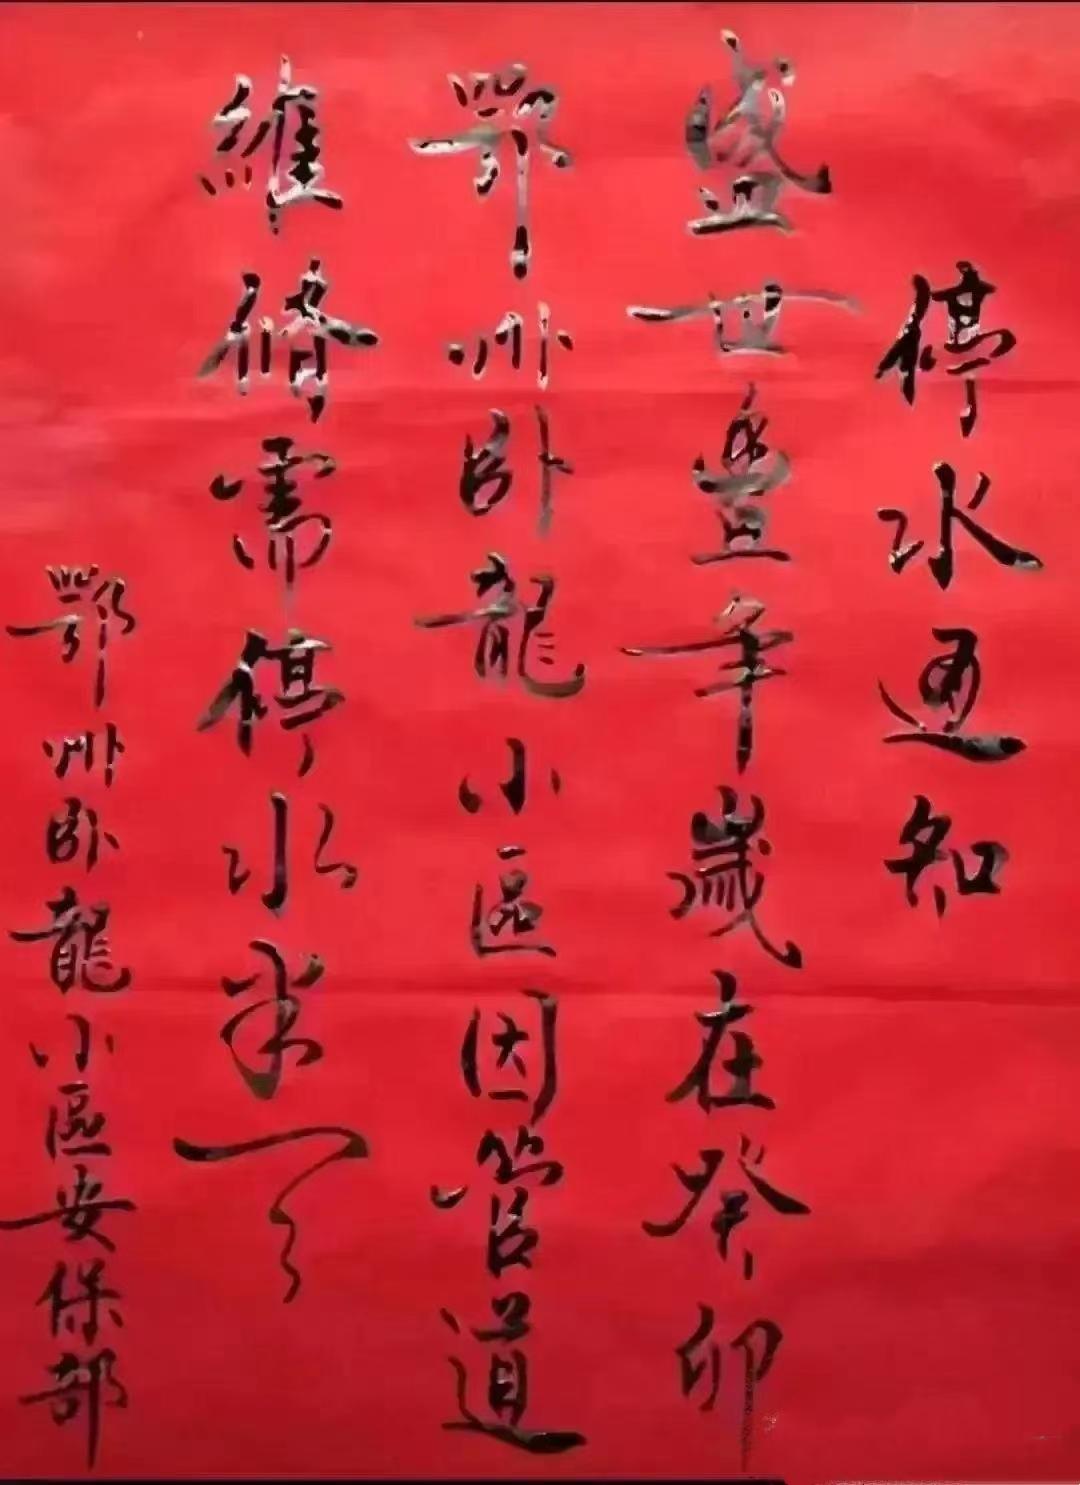 停水通知
盛世豐年歲在癸卯
鄂州卧龍小區因管道
維脩需停水半天
鄂州卧龍小區安保部